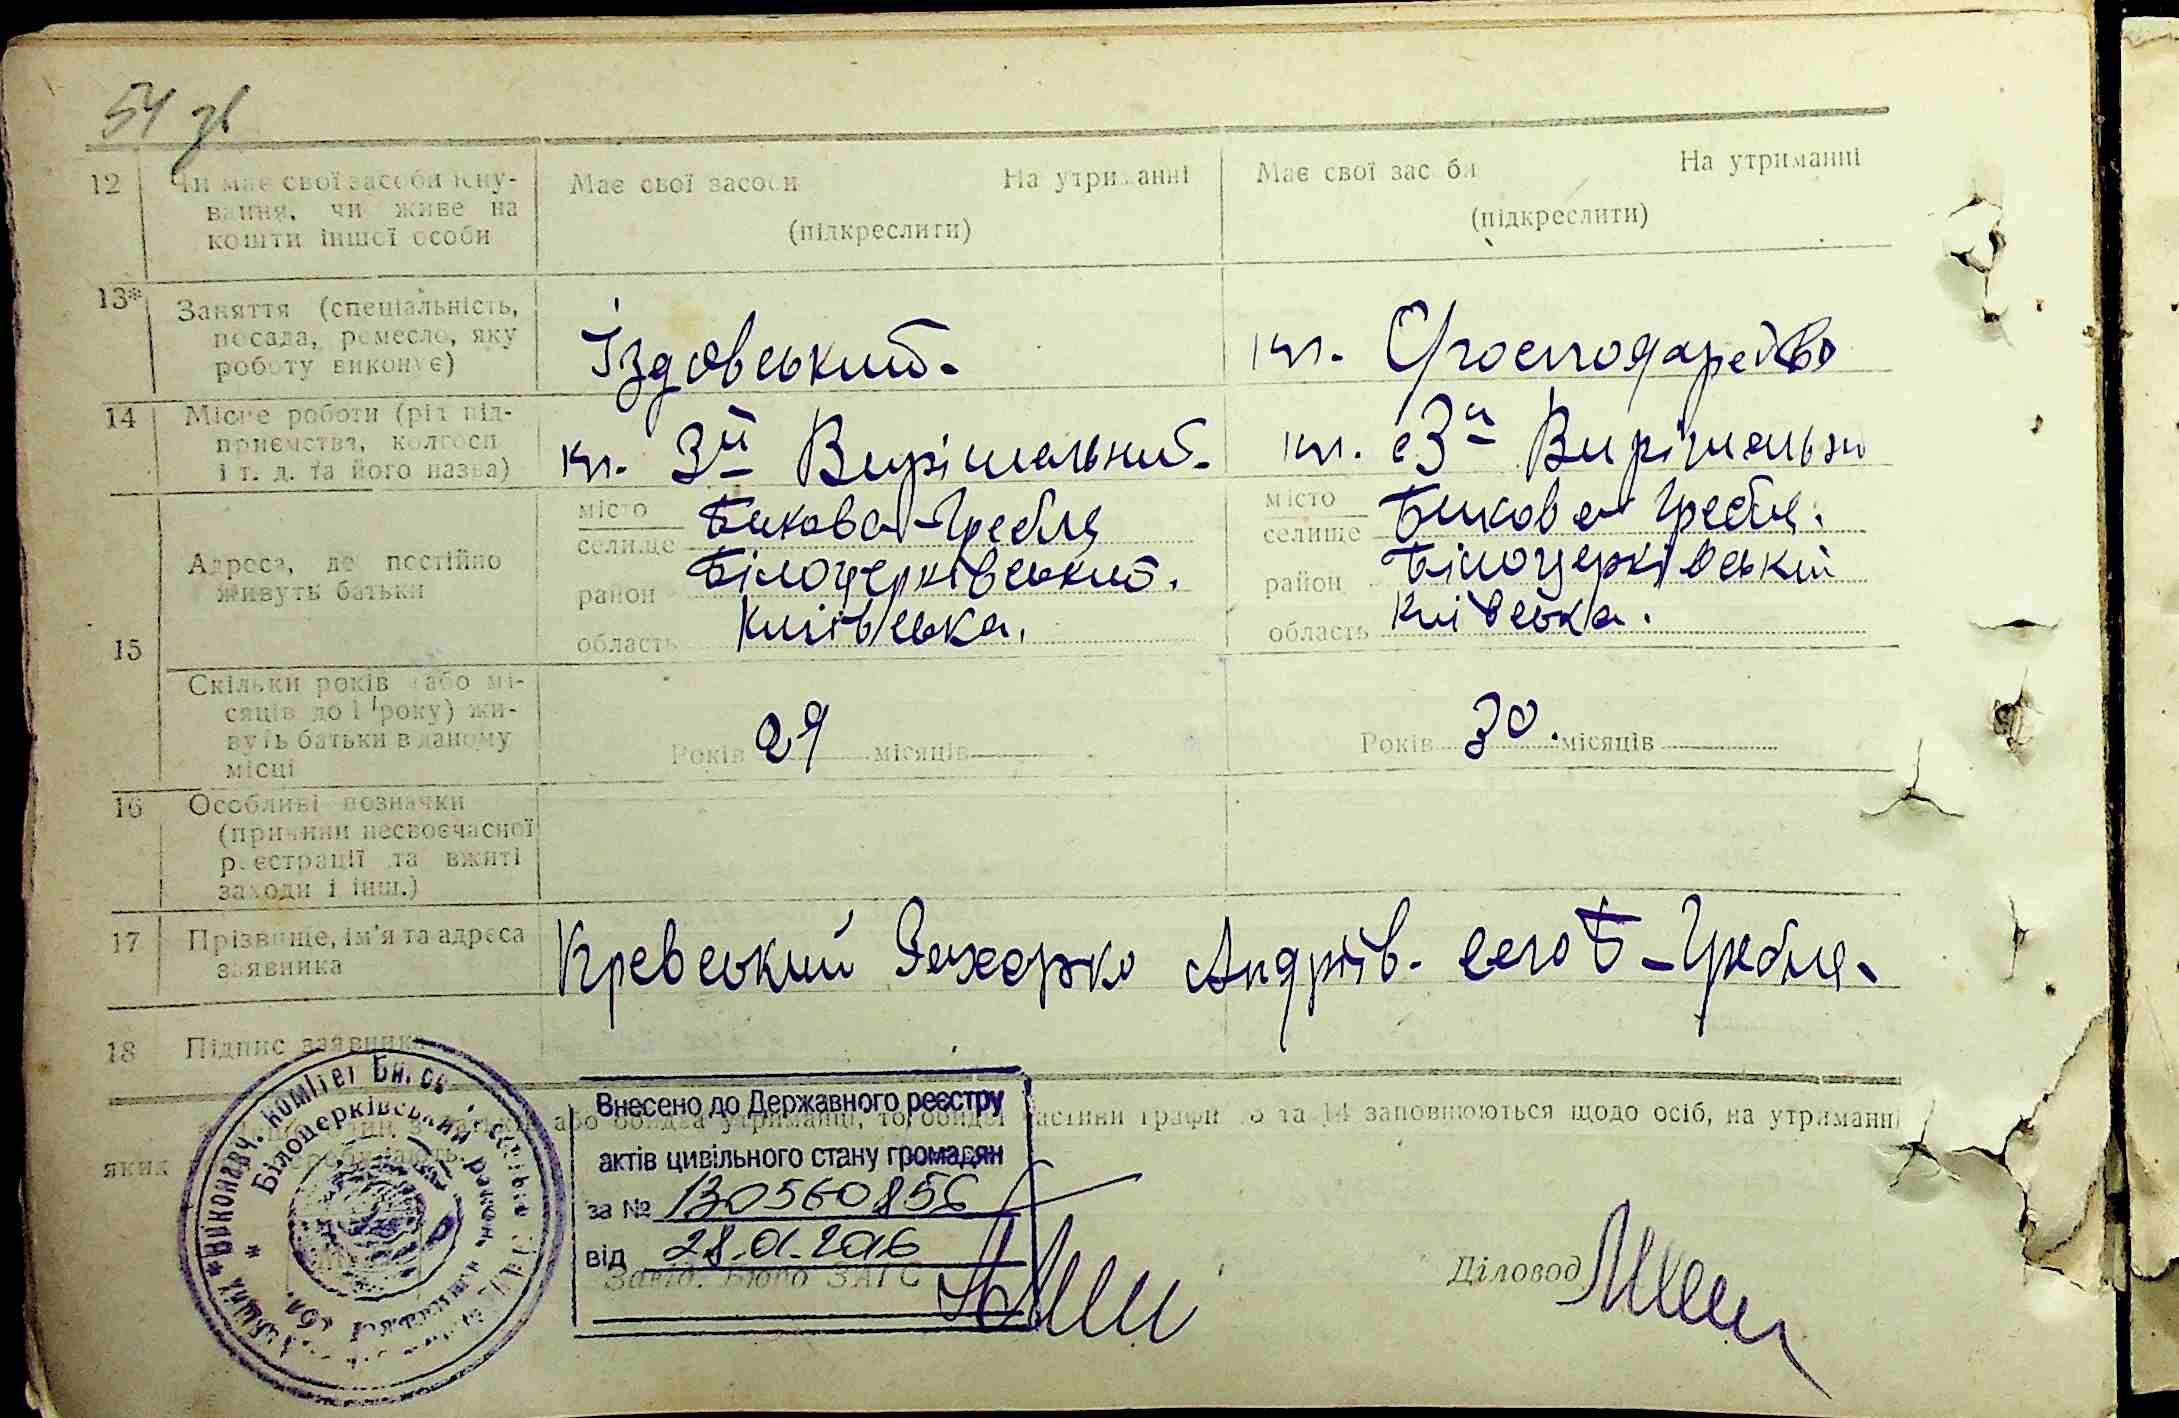 54 зв
12 Чи має свої засоби існу-
вання, чи живе на
кошти іншої особи
Має свої засоби На утриманні
(підкреслити)
Має свої засоби На утриманні
(підкреслити)
13* Заняття (спеціальність,
посада, ремесло, яку
роботу виконує)
Їздовський.
кл.
14 Місце роботи (рід під-
приємства, колгосп
і т. д. та його назва)
кл. 3й Вирішальний.
кл. 3й Вирішальн
15 Адреса, де постійно
живуть батьки
місто
селище Бикова-Гребля
район Білоцерківський.
область Київська.
місто
селище Бикова Гребля.
район Білоцерківський
область Київська.
Скільки років (або мі-
сяців до 1 року) жи-
вуть батьки в даному
місці
Років 29 місяців
Років 30. місяців
16 Особливі позначки
(причини несвоєчасної
реєстрації та вжиті
заходи і інш.)
17 Прізвище, ім'я та адреса
заявника
Кревський Захарко Андріїв. село Б-Гребля.
18 Підпис заявника
або обидва утриманці, то обидві частини графи 13 та 14 заповнюються щодо осіб, на утриманні
яких
Виконавч. комітет
Білоцерківський район
Внесено до Державного реєстру
актів цивільного стану громадян
за № 130560856
від 28.01.2016
Завід. Бюро ЗАГС
Діловод